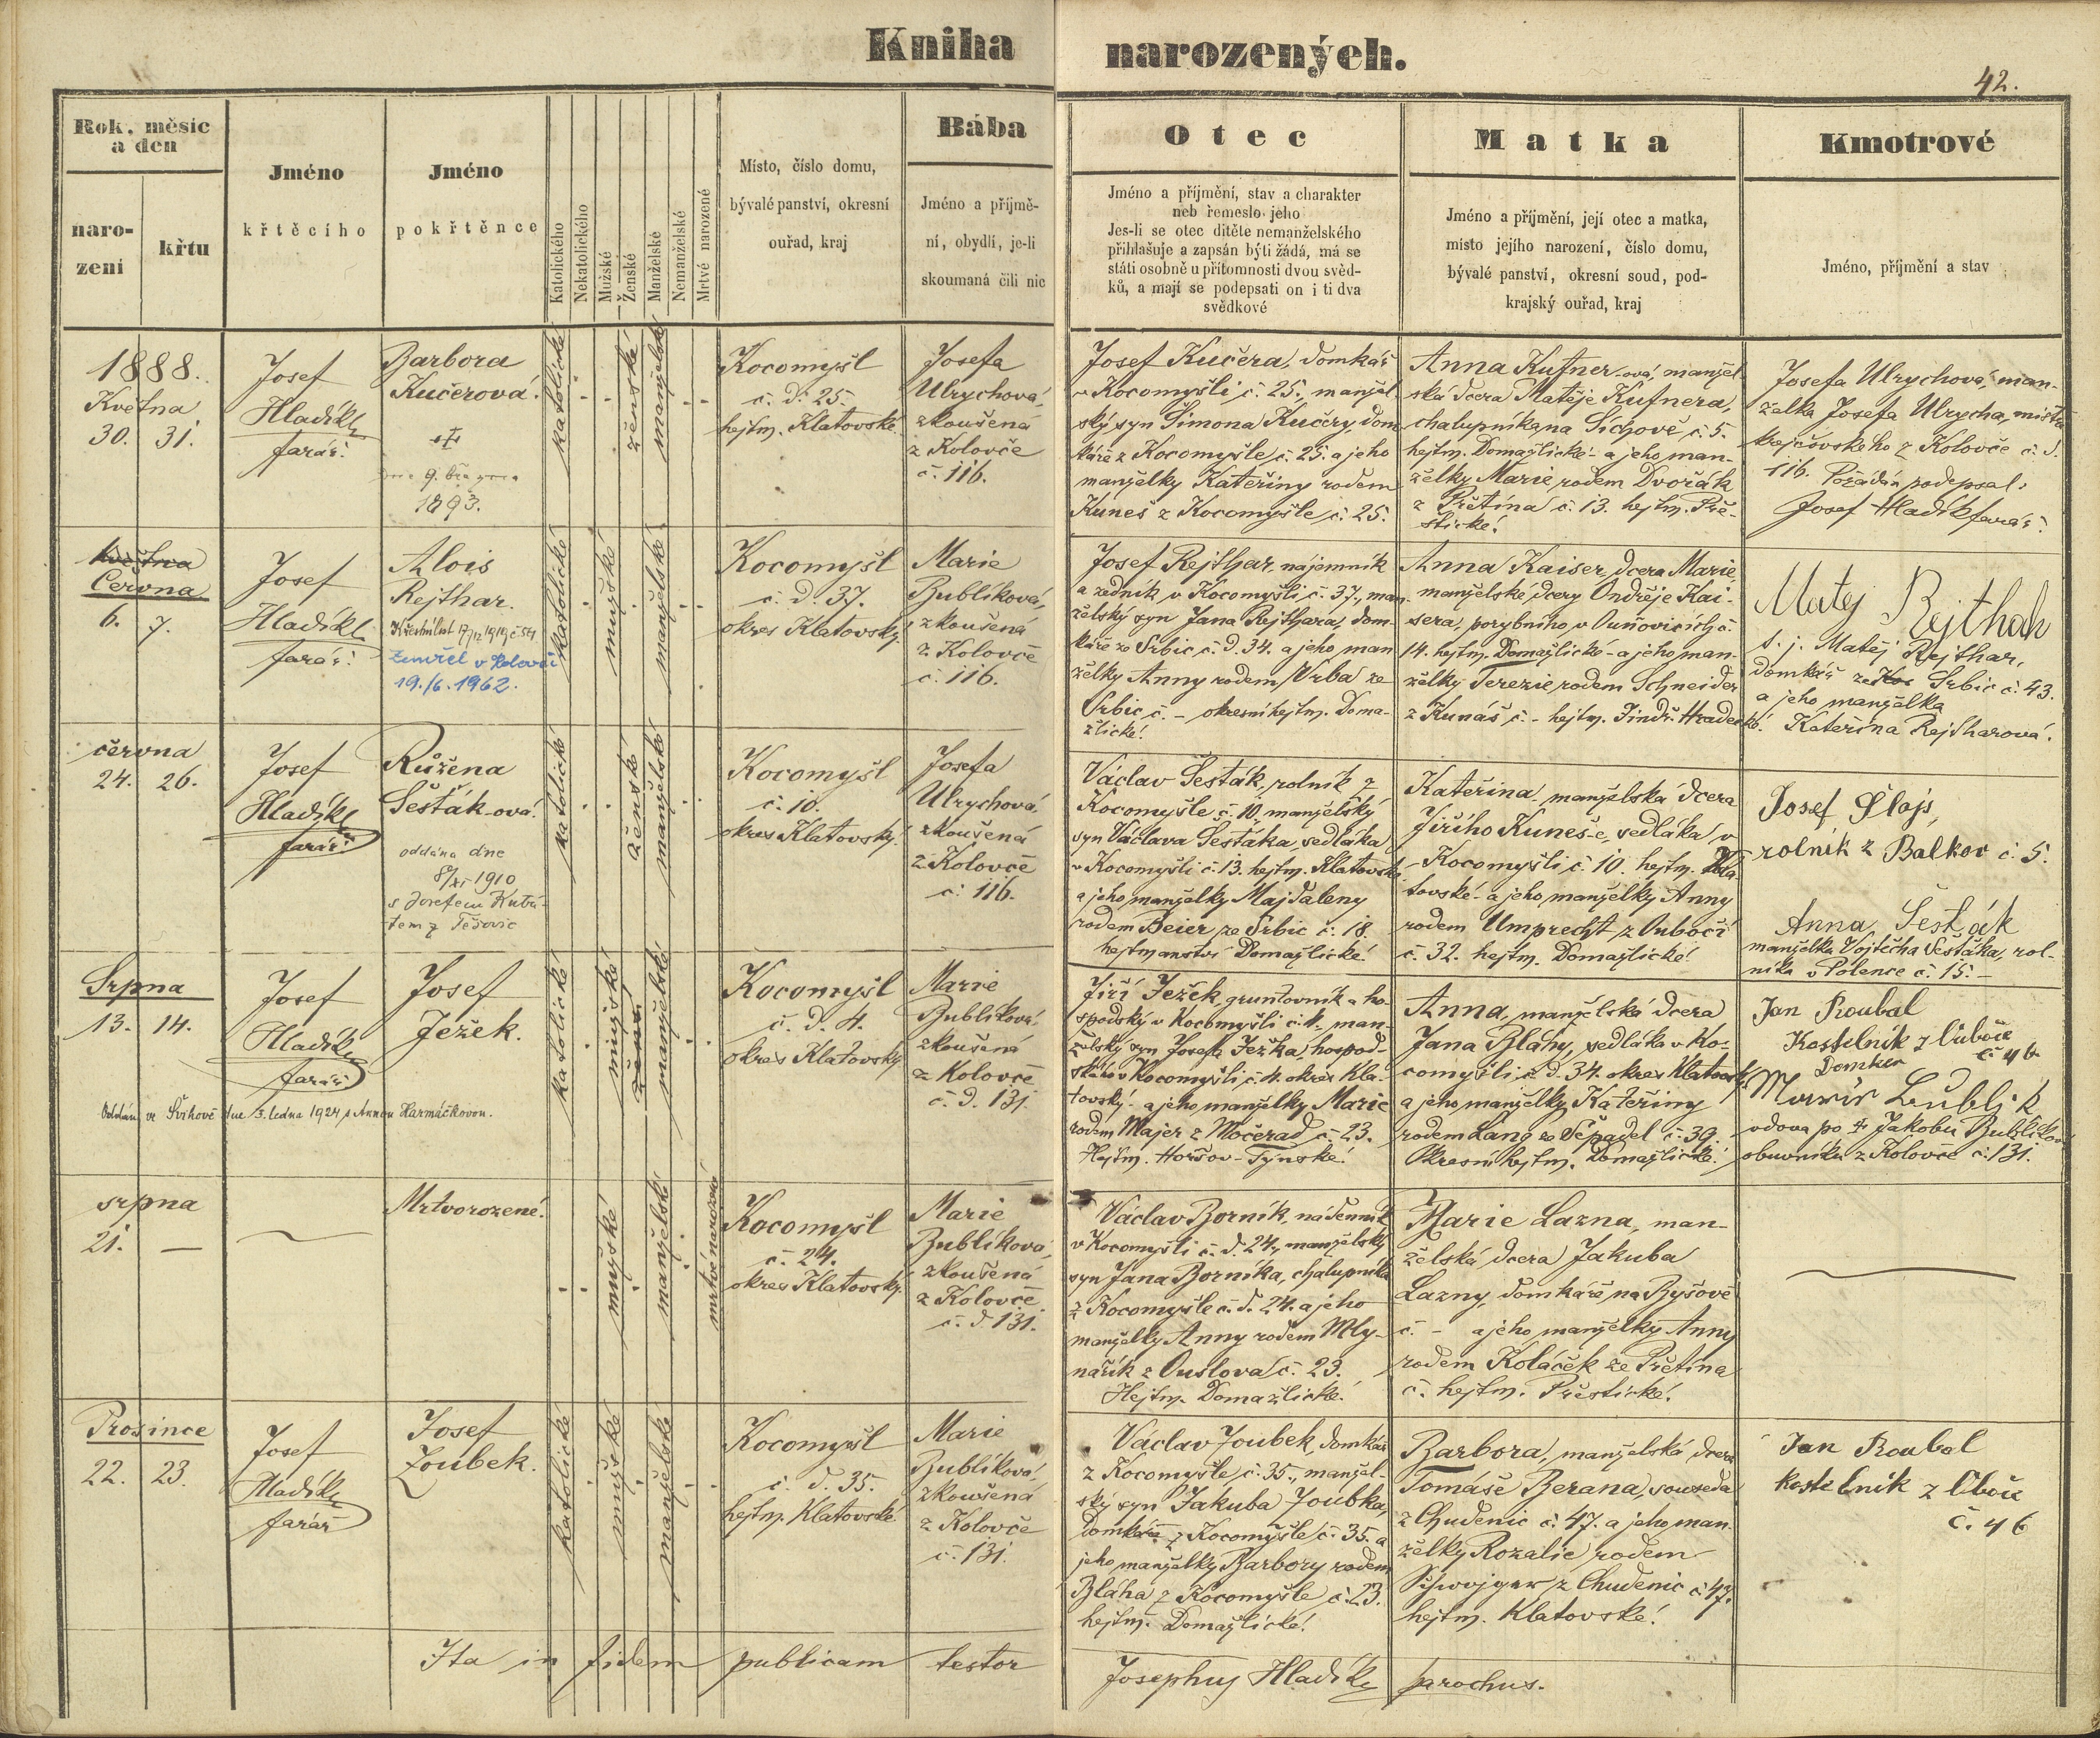 Kniha narozených.
42.
Rok, měsíc
a den
naro-
zení
křtu
Jméno
křtěcího
Jméno
pokřtěnce
Katolického
Nekatolického
Mužské
Ženské
Manželské
Nemanželské
Mrtvé narozené
Místo, číslo domu,
bývalé panství, okresní
ouřad, kraj
Bába
Jméno a příjmě-
ní, obydlí, je-li
skoumaná čili nic
Otec
Jméno a příjmění, stav a charakter
neb řemeslo jeho
Jes-li se otec ditěte nemanželského
přihlašuje a zapsán býti žádá, má se
státi osobně u přítomnosti dvou svěd-
ků, a mají se podepsati on i ti dva
svědkové
Matka
Jméno a příjmění, její otec a matka,
místo jejího narození, číslo domu,
bývalé panství, okresní soud, pod-
krajský ouřad, kraj
Kmotrové
Jméno, příjmění a stav
1888.
Května
30. 31.
Josef
Hladík
farář.
Barbora
Kučerová.
dne 9. března
1893.
katolické
ženské
manželské
Kocomyšl
č. d. 25.
hejtm. Klatovské
Josefa
Ulrychová,
zkoušená
z Kolovče
č. 116.
Josef Kučera, domkář
v Kocomyšli č. 25., manžel-
ský syn Šimona Kučery, dom
káře z Kocomyšle č. 25. a jeho
manželky Kateřiny rodem
Kuneš z Kocomyšle č. 25.
Anna Kufner-ová, manžel-
ská dcera Matěje Kufnera,
chalupníka na Sichově č. 5.
hejtm. Domažlické - a jeho man-
želky Marie rodem Dvořák
z Přetína č. 13. hejtm. Pře-
štické.
Josefa Ulrychová, man-
želka Josefa Ulrycha, mistra
krejčovského z Kolovče č. d.
116. Požádán podepsal:
Josef Hladík farář.
Května
Června
6. 7.
Josef
Hladík
farář.
Alois
Rejthar.
Křestní list 17/12 1919 č. 54
Zemřel v Kolovči
19./6. 1962.
katolické
mužské
manželské
Kocomyšl
č. d. 37.
okres Klatovský
Marie
Bublíková,
zkoušená
z Kolovče
č. 116.
Josef Rejthar, nájemník
a zedník v Kocomyšli č. 37., man-
želský syn Jana Rejthara, dom-
káře ze Srbic č. d. 34. a jeho man
želky Anny rodem Vrba ze
Srbic č. - okresní hejtm. Doma-
žlické.
Anna Kaiser, dcera Marie,
manželské dcery Ondřeje Kai-
sera, porybného v Ouňovicích č.
14. hejtm. Domažlické - a jeho man-
želky Terezie rodem Schneider
z Kunáš č. - hejtm. Jindř. Hradecké.
Matej Rejthah
t. j. Matěj Rejthar,
domkář ze Koc Srbic č. 43.
a jeho manželka
Kateřina Rejtharová.
června
24. 26.
Josef
Hladík
farář
Růžena
Šesták-ová.
oddána dne
8/XI 1910
s Josefem Kutá-
tem z Těšovic
katolické
ženské
manželské
Kocomyšl
č. 10.
okres Klatovský
Josefa
Ulrychová,
zkoušená
z Kolovče
č. 116.
Václav Šesták, rolník z
Kocomyšle č. 10, manželský
syn Václava Šestáka, sedláka
v Kocomyšli č. 13. hejtm. Klatovské
a jeho manželky Majdaleny
rodem Beier ze Srbic č. 18.
hejtmanství Domažlické.
Kateřina, manželská dcera
Jiřího Kuneš-e, sedláka v
Kocomyšli č. 10. hejtm. Kla-
tovské - a jeho manželky Anny
rodem Umprecht z Ouboči
č. 32. hejtm. Domažlické.
Josef Šlajs,
rolník z Balkov č. 5.
Anna Šesták
manželka Vojtěcha Šestáka, rol-
níka v Polence č. 15.
Srpna
13. 14.
Josef
Hladík
farář
Josef
Ježek.
Oddán ve Švihově dne 3. ledna 1924 s Annou Harmáčkovou.
katolické
mužské
manželské
Kocomyšl
č. d. 4.
okres Klatovský
Marie
Bublíková,
zkoušená
z Kolovče
č. d. 131.
Jiří Ježek, gruntovník a ho-
spodský v Kocomyšli č. 4. man-
želský syn Josefa Ježka, hospod-
ského v Kocomyšli č. 4. okres Kla-
tovský - a jeho manželky Marie
rodem Majer z Močerad č. 23.
Hejtm. Horšov-Týnské.
Anna, manželská dcera
Jana Bláhy, sedláka v Ko-
comyšli č. d. 34. okres Klatovský
a jeho manželky Kateřiny
rodem Lang ze Sepadel č. 39.
Okresní hejtm. Domažlické.
Jan Roubal
Kostelník z Uboče
Domker č 46
Marie Bublik
vdova po † Jakobu Bublíkovi
obuvníku z Kolovče č. 131.
srpna
21. —
Mrtvorozené.
mužské
manželské
mrtvě narozené
Kocomyšl
č. 24.
okres Klatovský
Marie
Bublíková,
zkoušená
z Kolovče
č. d. 131.
Václav Borník, nádenník
v Kocomyšli č. d. 24., manželský
syn Jana Borníka, chalupníka
z Kocomyšle č. d. 24. a jeho
manželky Anny rodem Mly-
nařík z Ouslova č. 23.
Hejtm. Domažlické.
Marie Lazna, man-
želská dcera Jakuba
Lazny, domkáře na Ryšově
č. - a jeho manželky Anny
rodem Koláček ze Přetína
č. hejtm. Přeštické.
Prosince
22. 23.
Josef
Hladík
farář
Josef
Zoubek.
katolické
mužské
manželské
Kocomyšl
č. d. 35.
hejtm. Klatovské
Marie
Bublíková,
zkoušená
z Kolovče
č. 131.
Václav Zoubek, domkář
z Kocomyšle č. 35., manžel-
ský syn Jakuba Zoubka,
domkáře z Kocomyšle č. 35. a
jeho manželky Barbory rodem
Bláha z Kocomyšle č. 23.
hejtm. Domažlické.
Barbora, manželská dcera
Tomáše Berana, souseda
z Chudenic č. 47. a jeho man-
želky Rozalie rodem
z Chudenic č. 47.
hejtm. Klatovské.
Jan Roubal
kostelník z Uboče
č. 46
Ita in fidem publicam testor Josephus Hladík parochus.